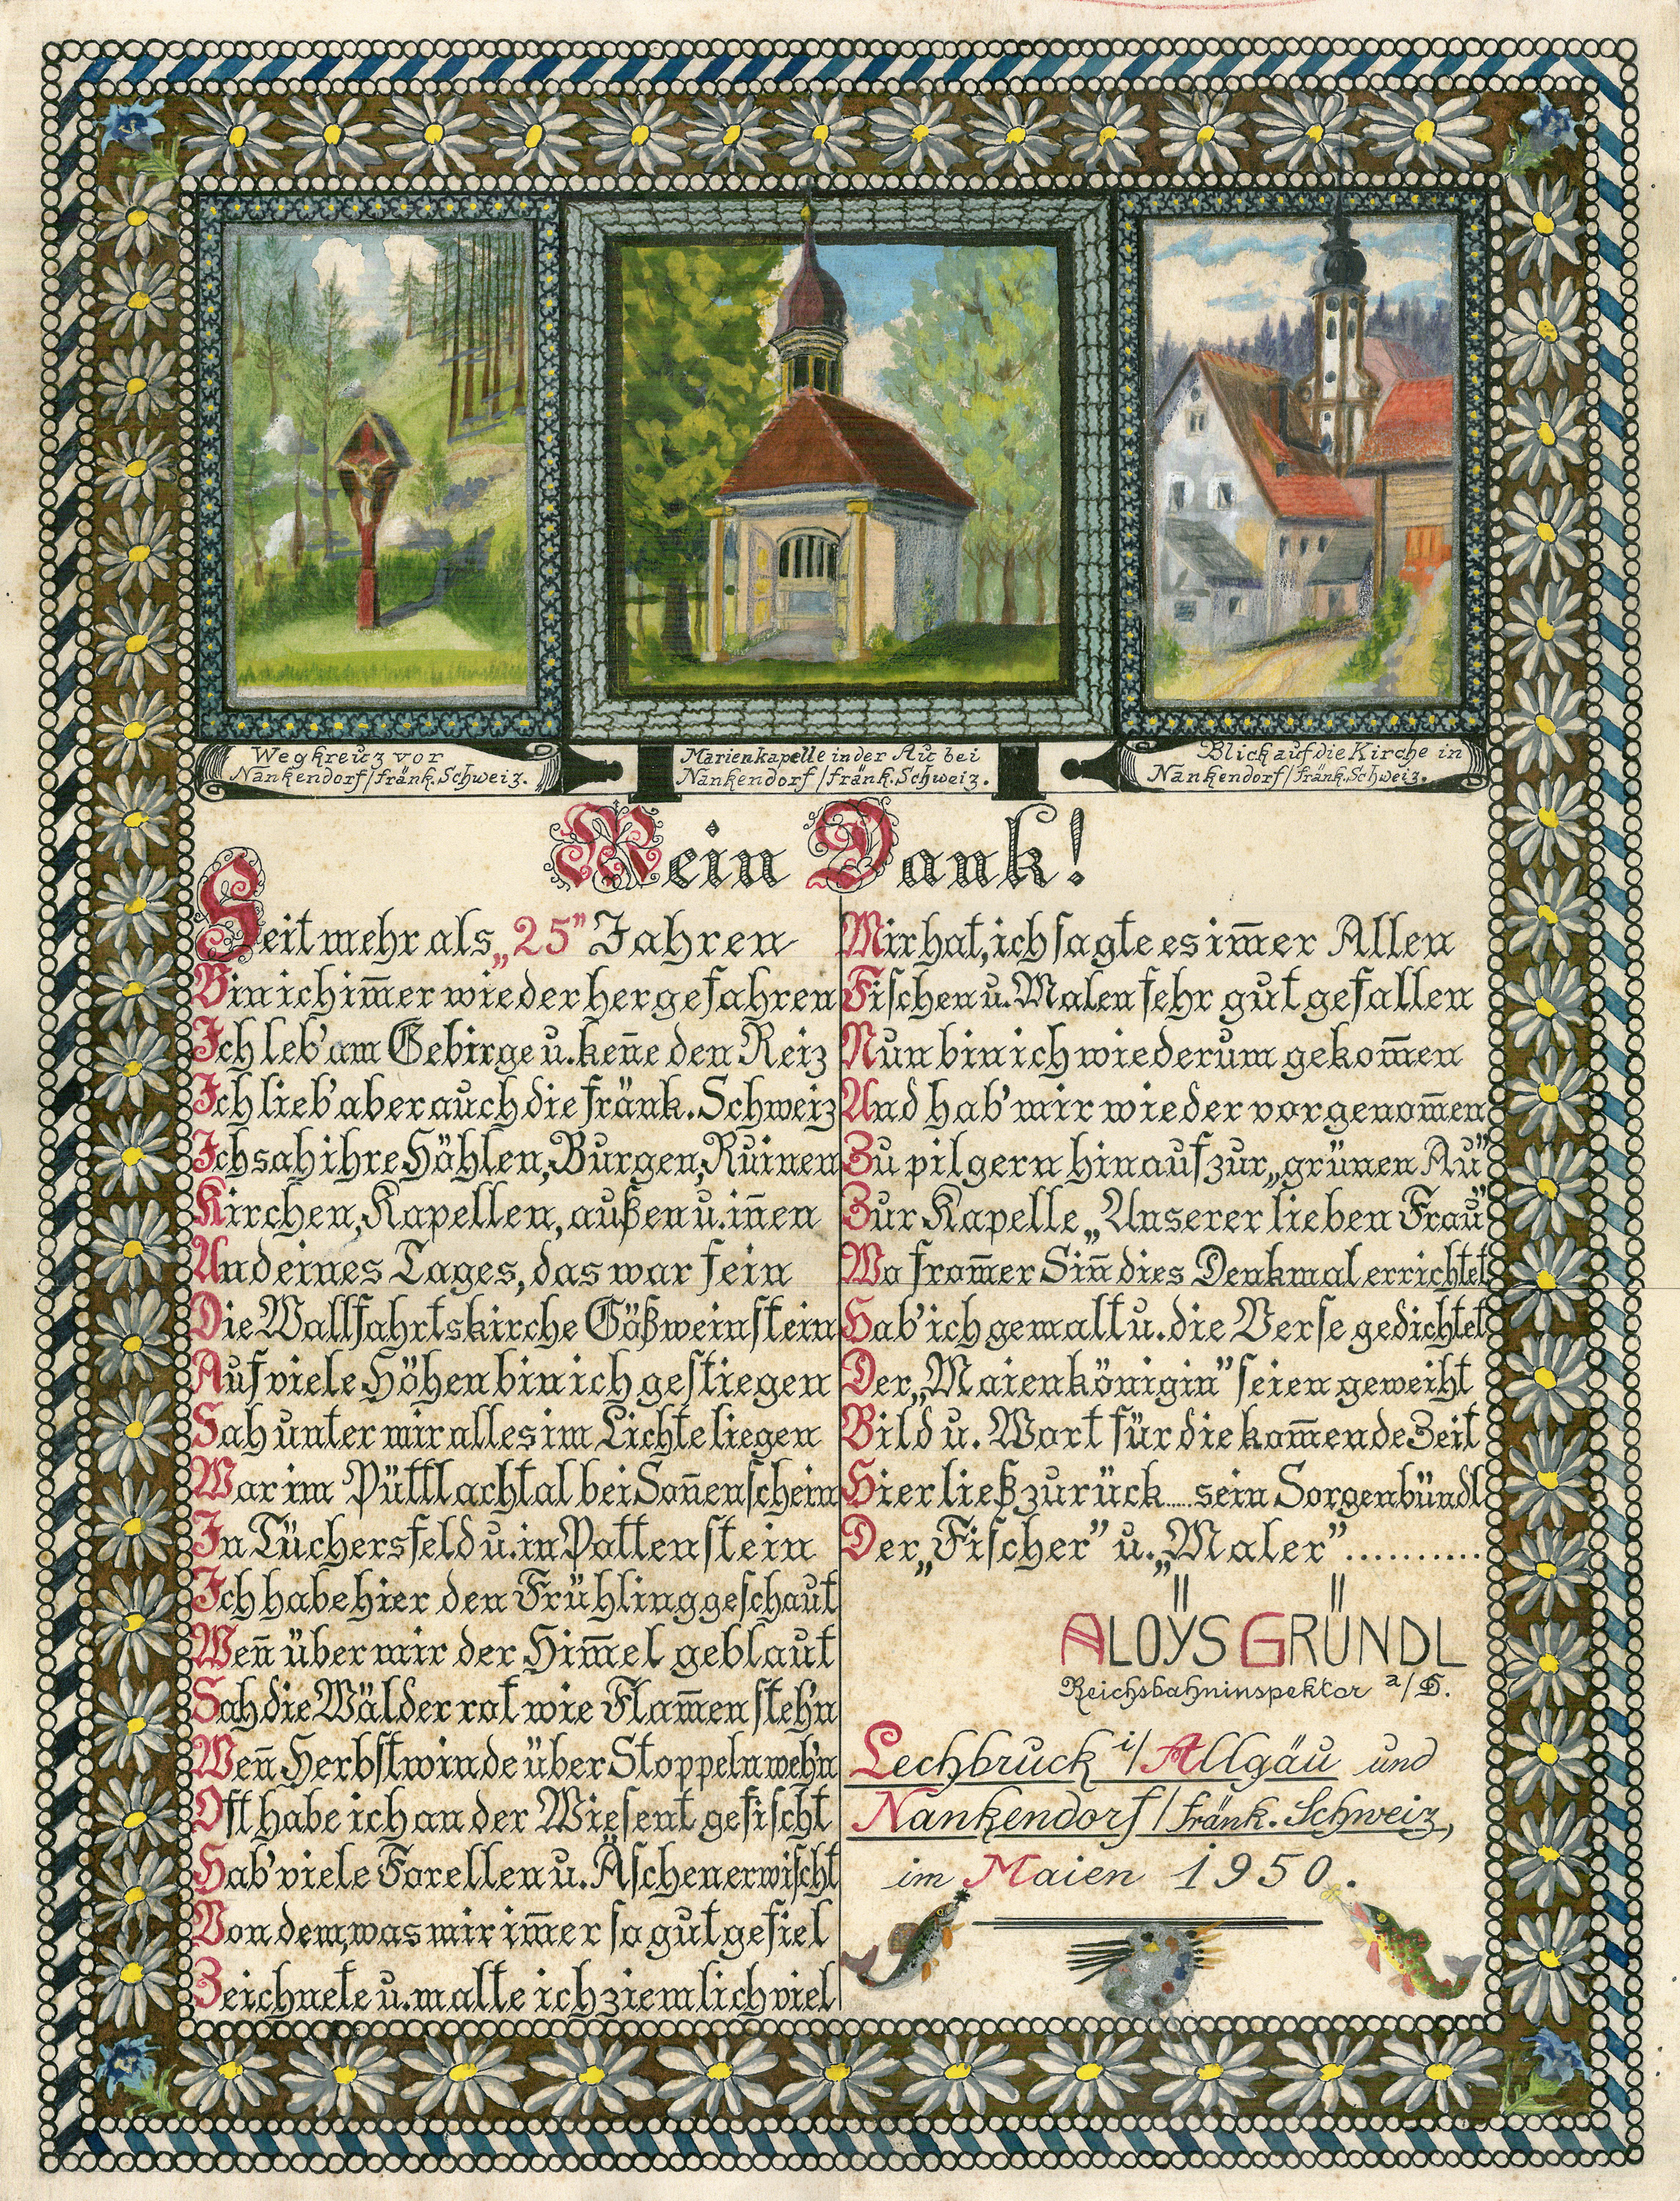 Wegkreuz vor
Nankendorf/fränk. Schweiz.
Marienkapelle in der Au bei
Nankendorf/fränk. Schweiz.
Blick auf die Kirche in
Nankendorf/fränk. Schweiz.
Mein Dank!
Seit mehr als „25” Jahren
Bin ich im̅er wieder hergefahren
Ich leb' am Gebirge u. ken̅e den Reiz
Ich lieb' aber auch die fränk. Schweiz
Ich sah ihre Höhlen, Burgen, Ruinen
Kirchen, Kapellen, außen u. in̅en
Und eines Tages, das war fein
Die Wallfahrtskirche Gößweinstein
Auf viele Höhen bin ich gestiegen
Sah unter mir alles im Lichte liegen
War im Püttlachtal bei Son̅enschein
In Tüchersfeld u. in Pottenstein
Ich habe hier den Frühling geschaut
Wen̅ über mir der Him̅el geblaut
Sah die Wälder rot wie Flam̅en steh'n
Wen̅ Herbstwinde über Stoppeln weh'n
Oft habe ich an der Wiesent gefischt
Hab' viele Forellen u. Äschen erwischt
Von dem, was mir im̅er so gut gefiel
Zeichnete u. malte ich ziemlich viel
Mir hat, ich sagte es im̅er Allen
Fischen u. Malen sehr gut gefallen
Nun bin ich wiederum gekom̅en
Und hab' mir wieder vorgenom̅en
Zu pilgern hinauf zur „grünen Au”
Zur Kapelle „Unserer lieben Frau”
Wo from̅er Sin̅ dies Denkmal errichtet
Hab' ich gemalt u. die Verse gedichtet
Der „Maienkönigin” seien geweiht
Bild u. Wort für die kom̅ende Zeit
Hier ließ zurück.....sein Sorgenbündl
Der „Fischer” u. „Maler”..........
ALOŸS GRÜNDL
Reichsbahninspektor a/D.
Lechbruck i/Allgäu und
Nankendorf/fränk. Schweiz,
im Maien 1950.